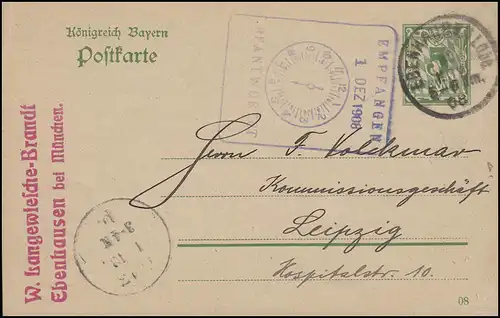 Königreich Bayern
Postkarte
EMPFANGEN
1 DEZ 1908
W. Langewiesche-Brandt
Ebenhausen bei München.
Herrn F. Volckmar
Kommissionsgeschäft
Leipzig
Hospitalstr. 10.
3-4 N
08